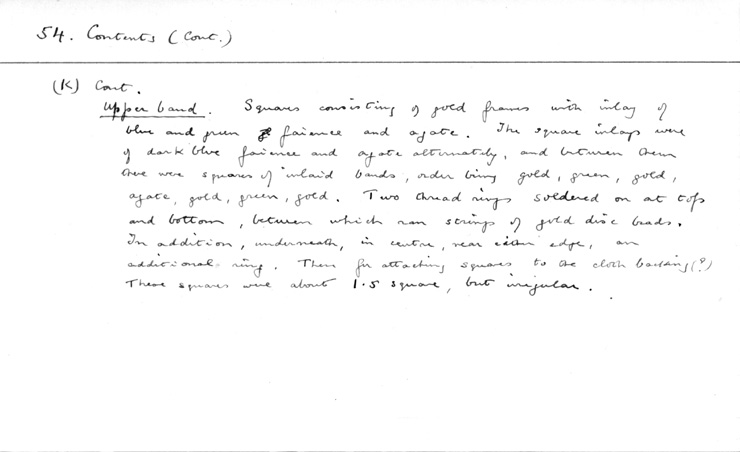 54. Contents (Cont.)
(K) Cont.
Upper band. Squares consisting of gold frames with inlay of
blue and green faience and agate. The square inlays were
of dark blue faience and agate alternately, and between them
there were squares of inlaid bands, order being gold, green, gold,
agate, gold, green, gold. Two thread rings soldered on at tops
and bottom, between which ran strings of gold disc beads.
In addition, underneath, in centre, near either edge, an
additional ring. These for attaching squares to the cloth backing(?)
These squares were about 1.5 square, but irregular.